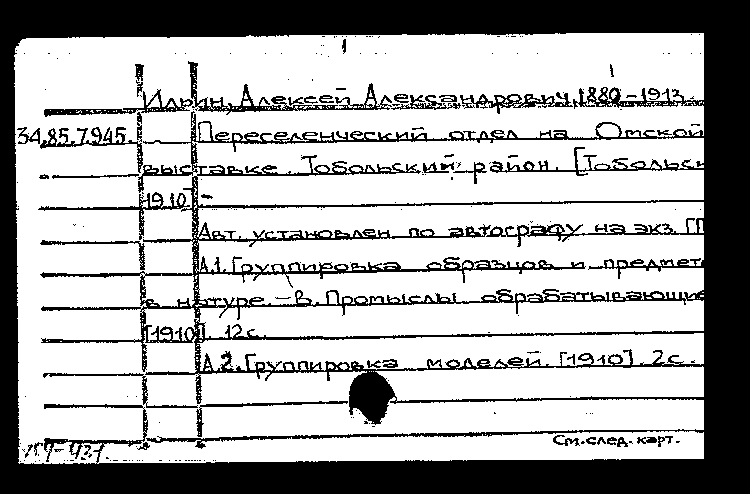 Ильин, Алексей Александрович, 1880-1913.
34.85.7.945. Переселенческий отдел на Омской
выставке. Тобольский район. [Тобольск
1910] -
Авт. установлен по автографу на экз. ГП
А.1. Группировка образцов и предмет
в натуре. - В. Промыслы обрабатывающие
[1910]. 12 с.
А.2. Группировка моделей. [1910]. 2 с.
См. след. карт.